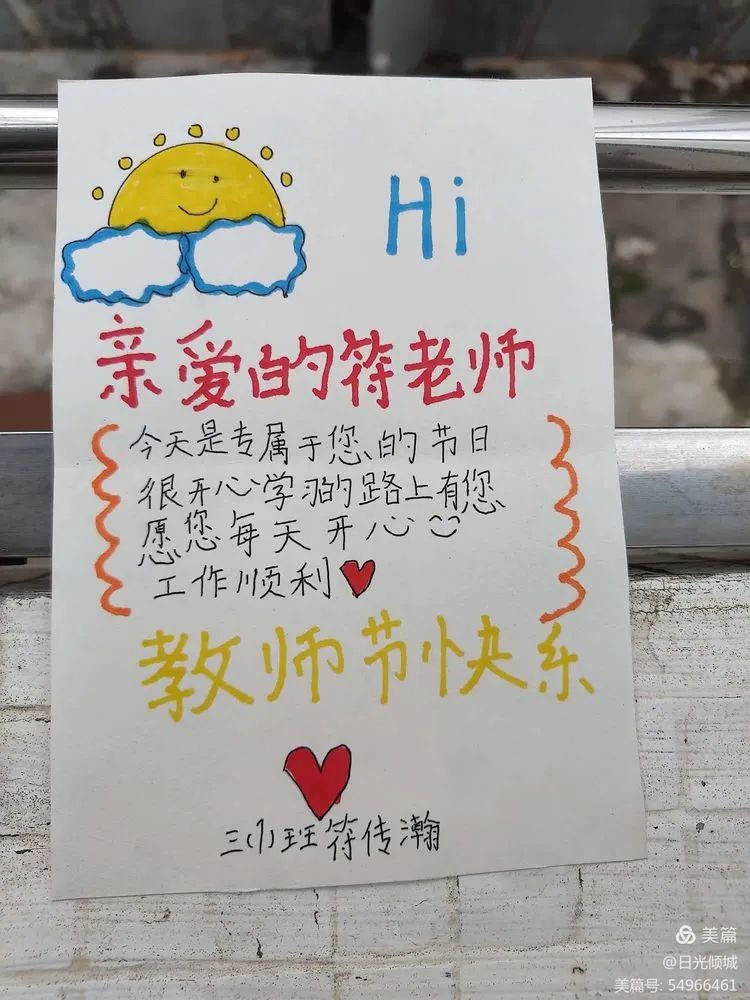 Hi
亲爱的符老师
今天是专属于您的节日
很开心学习的路上有您
愿您每天开心
工作顺利
教师节快乐
三(1)班符传瀚
美篇
@日光倾城
美篇号: 54966461